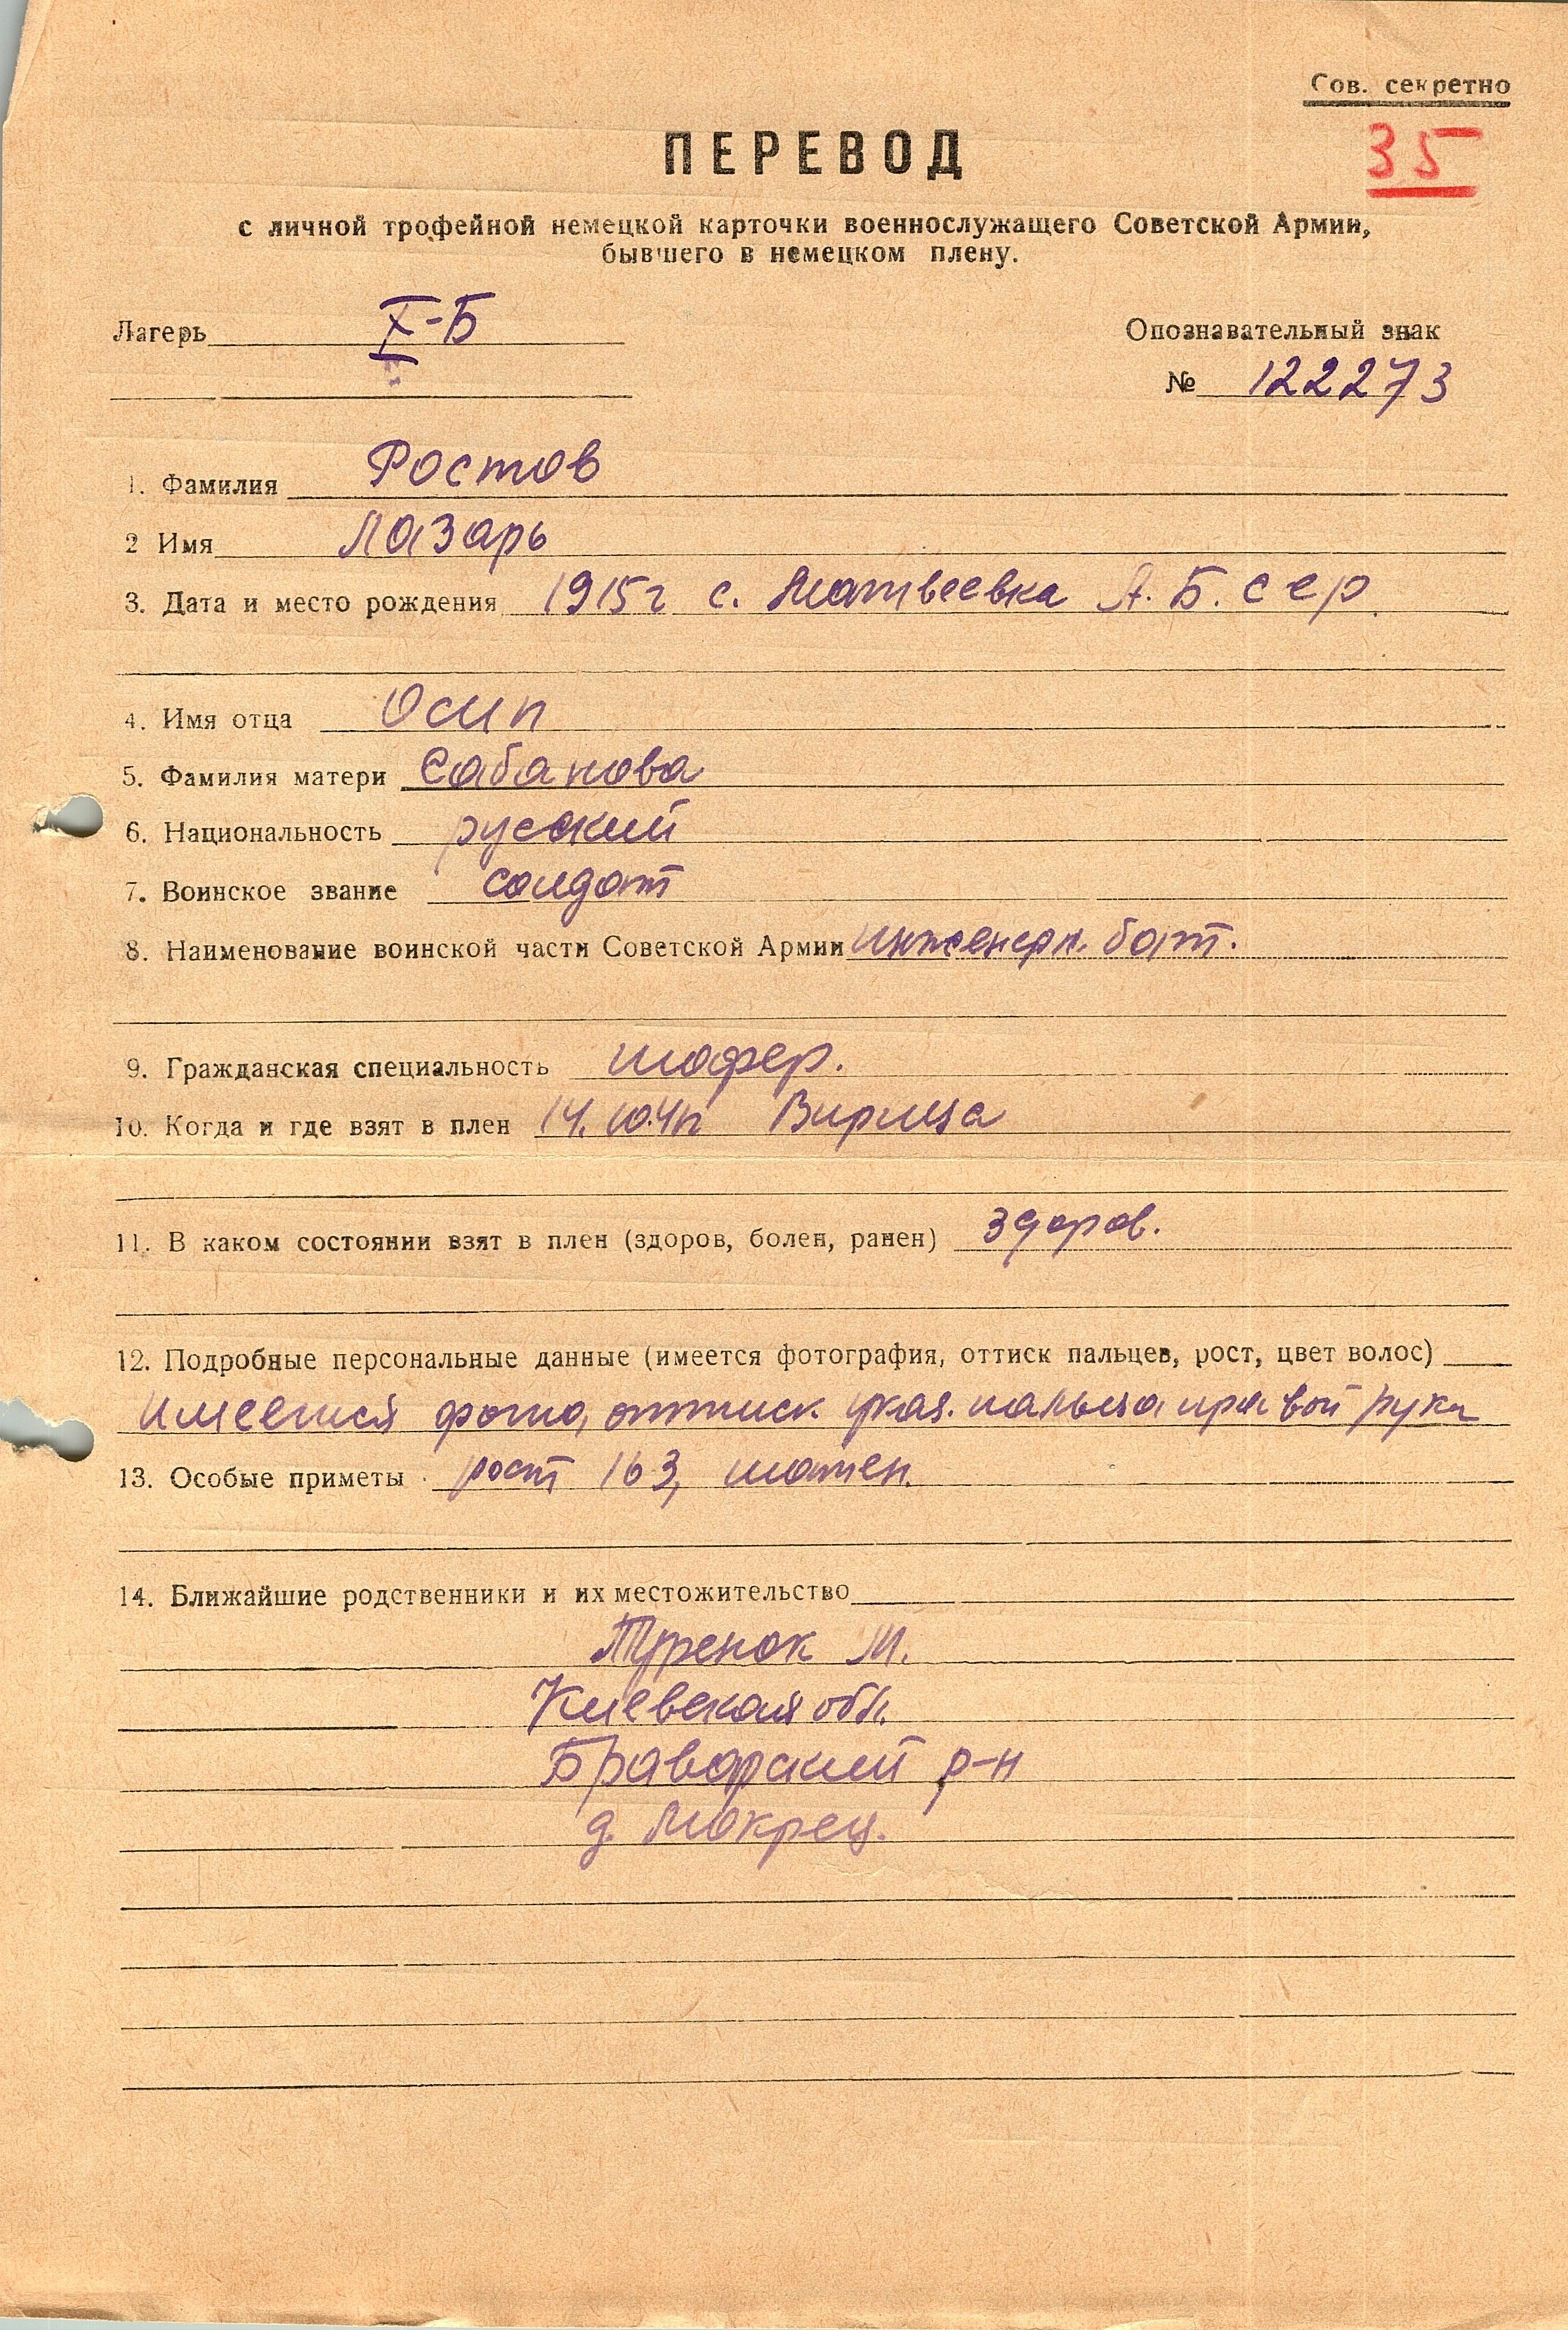 Сов. секретно
35
ПЕРЕВОД
с личной трофейной немецкой карточки военнослужащего Советской Армии,
бывшего в немецком плену.
Лагерь X-Б
Опознавательный знак
№ 122273
1. Фамилия Ростов
2 Имя Лазарь
3. Дата и место рождения 1915г с. Матвеевка А. Б. сср.
4. Имя отца Осип
5. Фамилия матери Сабанова
6. Национальность русский
7. Воинское звание солдат
8. Наименование воинской части Советской Армии инженерн. бат.
9. Гражданская специальность шофер.
10. Когда и где взят в плен Вирица
11. В каком состоянии взят в плен (здоров, болен, ранен) здоров.
12. Подробные персональные данные (имеется фотография, оттиск пальцев, рост, цвет волос)
имеется фото, оттиск указ. пальца правой руки
13. Особые приметы рост 163, шатен.
14. Ближайшие родственники и их местожительство
Туренок М.
Киевская обл.
Браварский р-н
д. Мокрец.